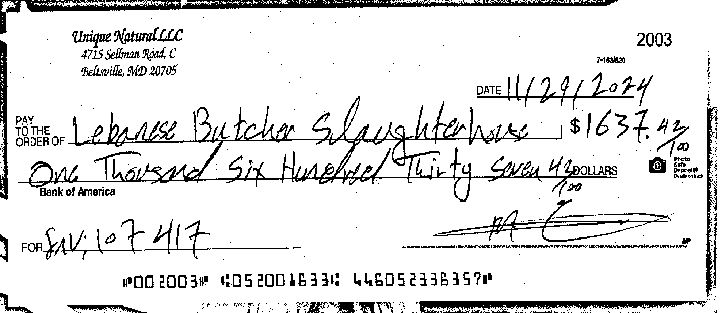 Unique Natural LLC
4715 Sellman Road, C
Beltsville, MD 20705
2003
7-163/520
DATE 11/29/2024
PAY TO THE ORDER OF Lebanese Butcher Slaughterhouse $1637.42/100
One Thousand Six Hundred Thirty Seven 42/100 DOLLARS
Photo Safe Deposit®
Bank of America
FOR INV: 107417
⑈002003⑈ ⑆052001633⑆ 446052338357⑈